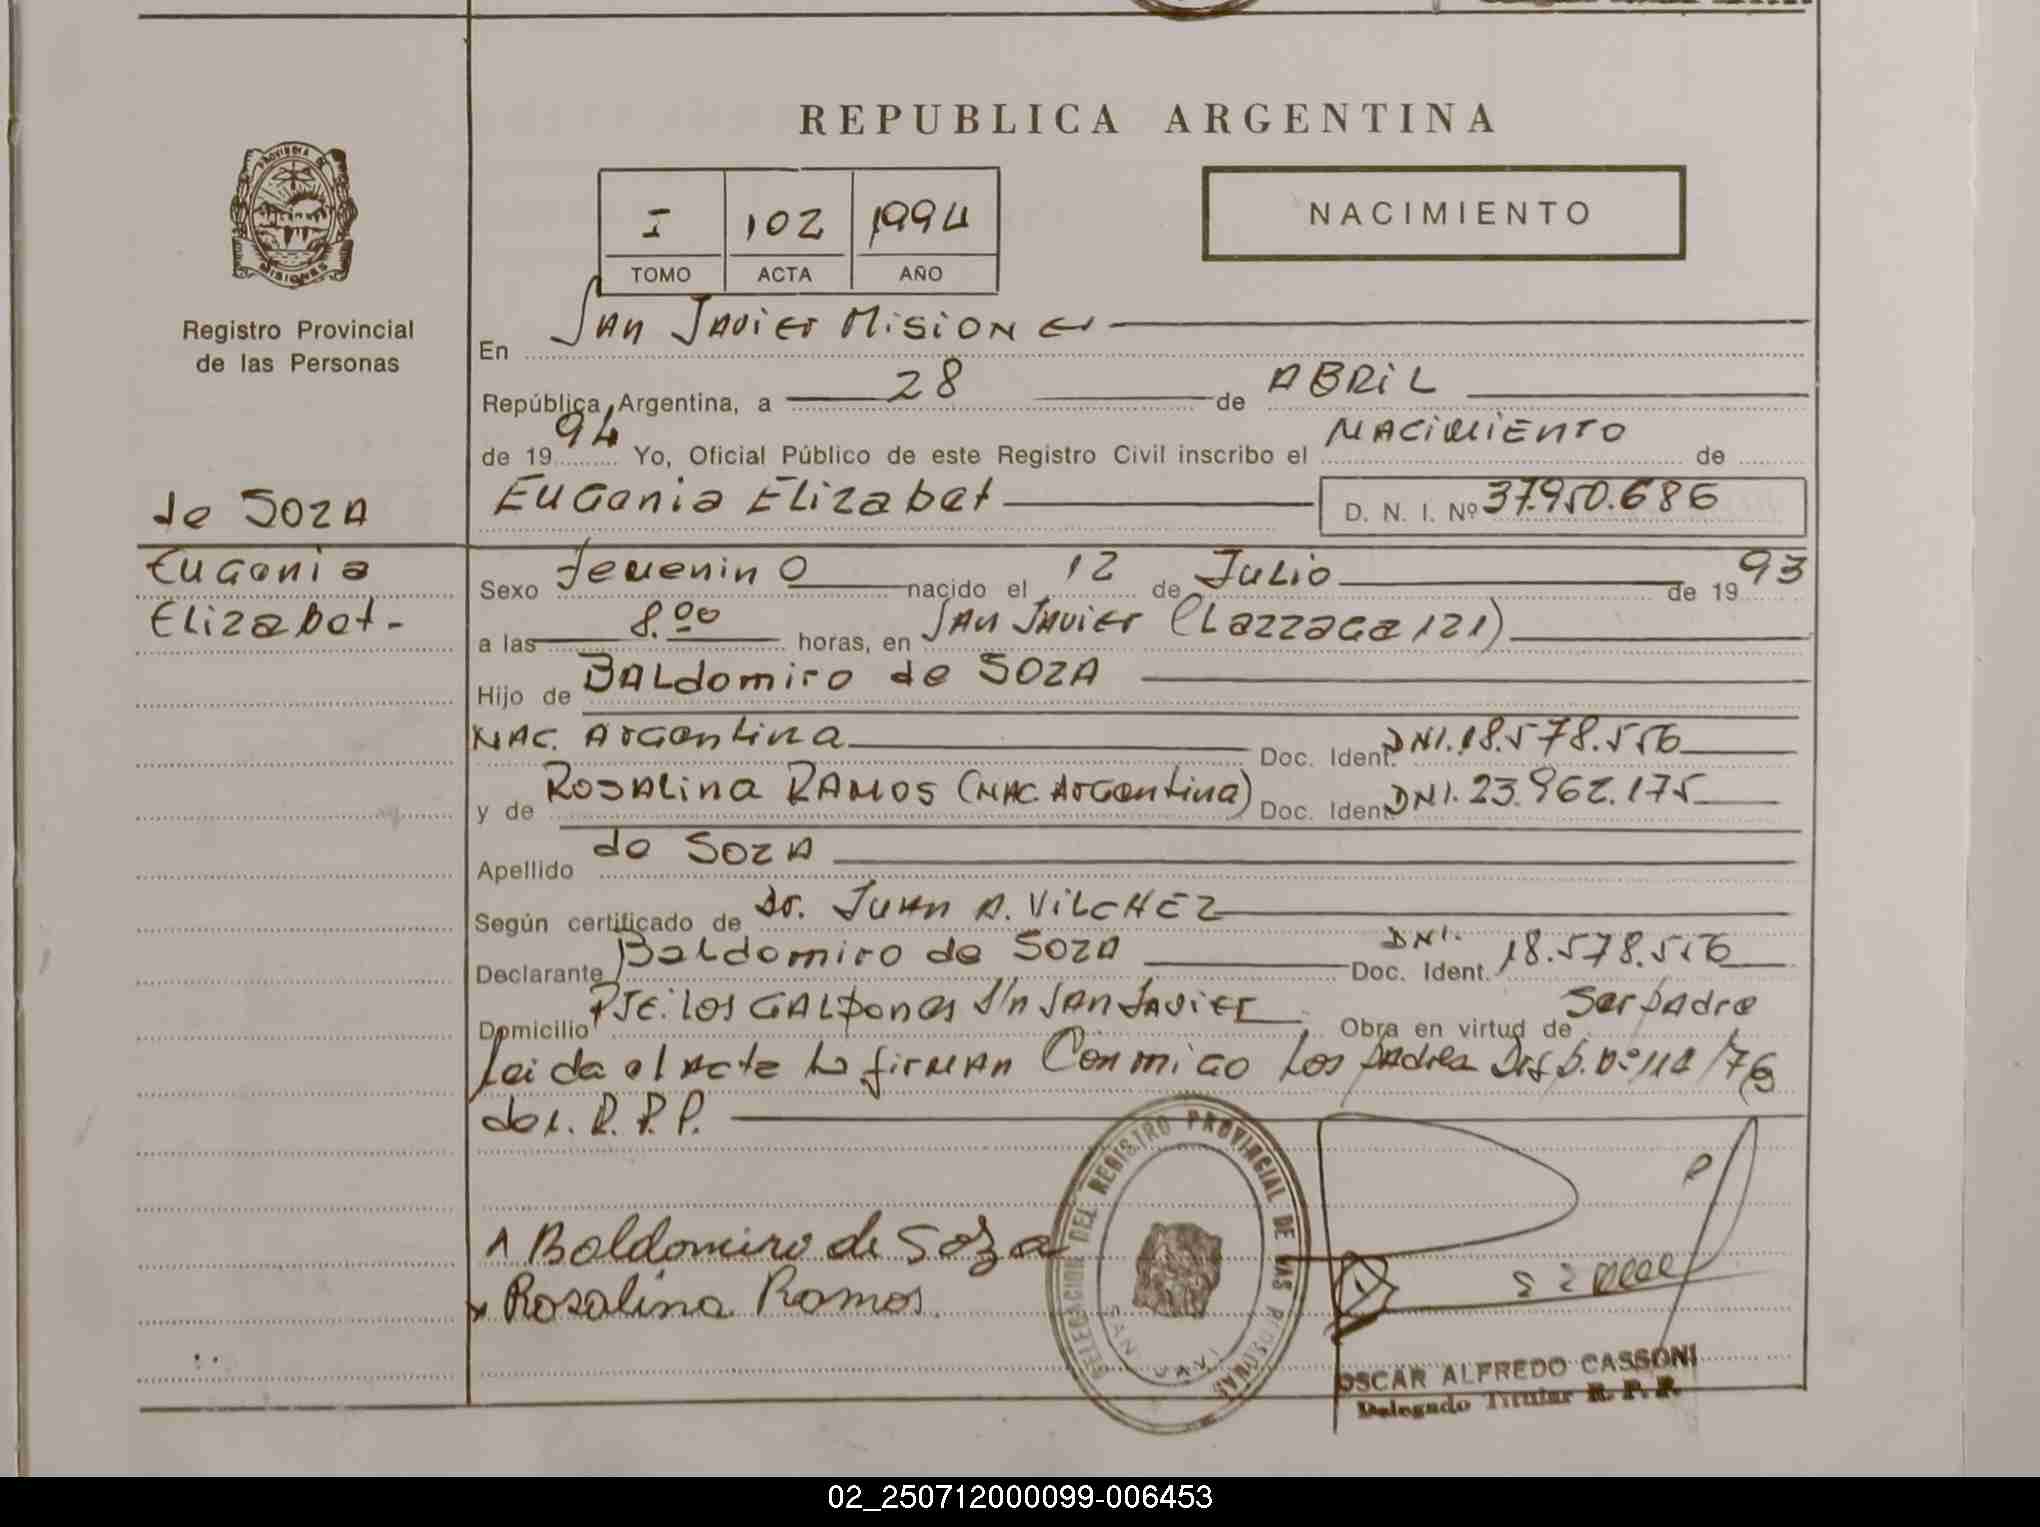 REPUBLICA ARGENTINA
PROVINCIA DE
MISIONES
Registro Provincial
de las Personas
I 102 1994
TOMO ACTA AÑO
NACIMIENTO
En San Javier Misiones
República Argentina, a 28 de ABRIL
de 1994 Yo, Oficial Público de este Registro Civil inscribo el NACIMIENTO de
Eugenia Elizabet D. N. I. Nº 37.950.686
de SOZA
Eugenia
Elizabet-
Sexo Femenino nacido el 12 de Julio de 1993
a las 8.00 horas, en San Javier (Lazzaga 121)
Hijo de Baldomiro de SOZA
NAC. Argentina Doc. Ident. DNI. 18.578.556
y de Rosalina RAMOS (NAC. Argentina) Doc. Ident. DNI. 23.962.175
Apellido de SOZA
Según certificado de Dr. Juan A. VILCHEZ
Declarante Baldomiro de SOZA Doc. Ident. DNI. 18.578.556
Domicilio Pje. los Galpones s/n San Javier Obra en virtud de Ser padre
Leida el acta la firman Conmigo los padres Disp. Nº 112/76
del. R.P.P.
Baldomiro de Soza
Rosalina Ramos.
DELEGACION DEL REGISTRO PROVINCIAL DE LAS PERSONAS
SAN JAVI
OSCAR ALFREDO CASSONI
Delegado Titular R. P. P.
02_250712000099-006453